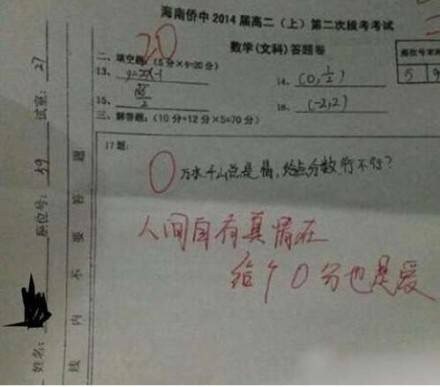 海南侨中2014届高二（上）第二次段考考试
数学(文科)答题卷
20
二、填空题：(5分×4=20分)
13、y=2x-1
14、(0,1/2)
15、
16、(-2,2)
三、解答题：(10分+12分×5=70分)
17题：
0
万水千山总是情，给点分数行不行？
人间自有真情在
给个0分也是爱
试室：27
座位号：59
姓名：
线内不要答题
座位号末两
5 9